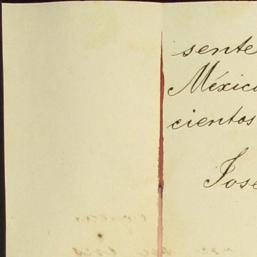 sente
Méxic
cientos
José